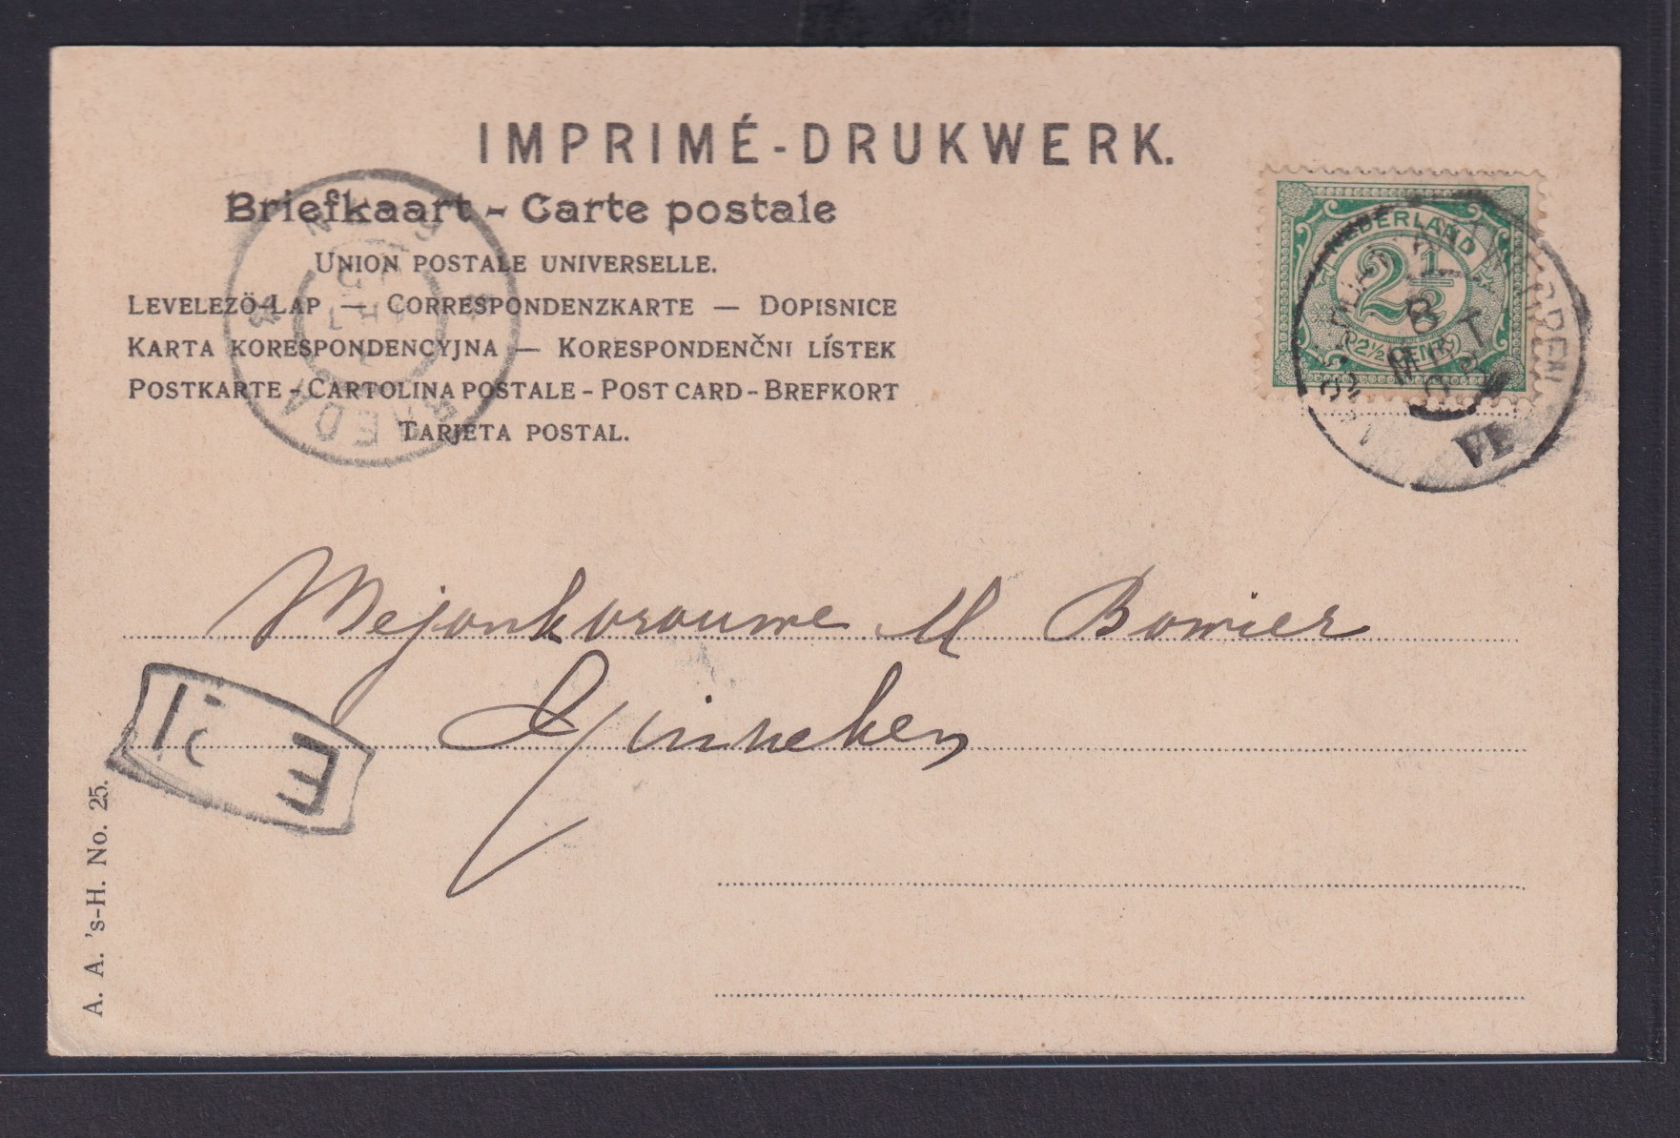 IMPRIMÉ-DRUKWERK.
Briefkaart - Carte postale
UNION POSTALE UNIVERSELLE.
LEVELEZÖ-LAP — CORRESPONDENZKARTE — DOPISNICE
KARTA KORESPONDENCYJNA — KORESPONDENČNI LÍSTEK
POSTKARTE - CARTOLINA POSTALE - POST CARD - BREFKORT
TARJETA POSTAL.
BREDA
NEDERLAND
2½
2½ CENT
8
MRT
Mejonkvrouwe M Bowier
Ginneken
A. A. 's-H. No. 25.